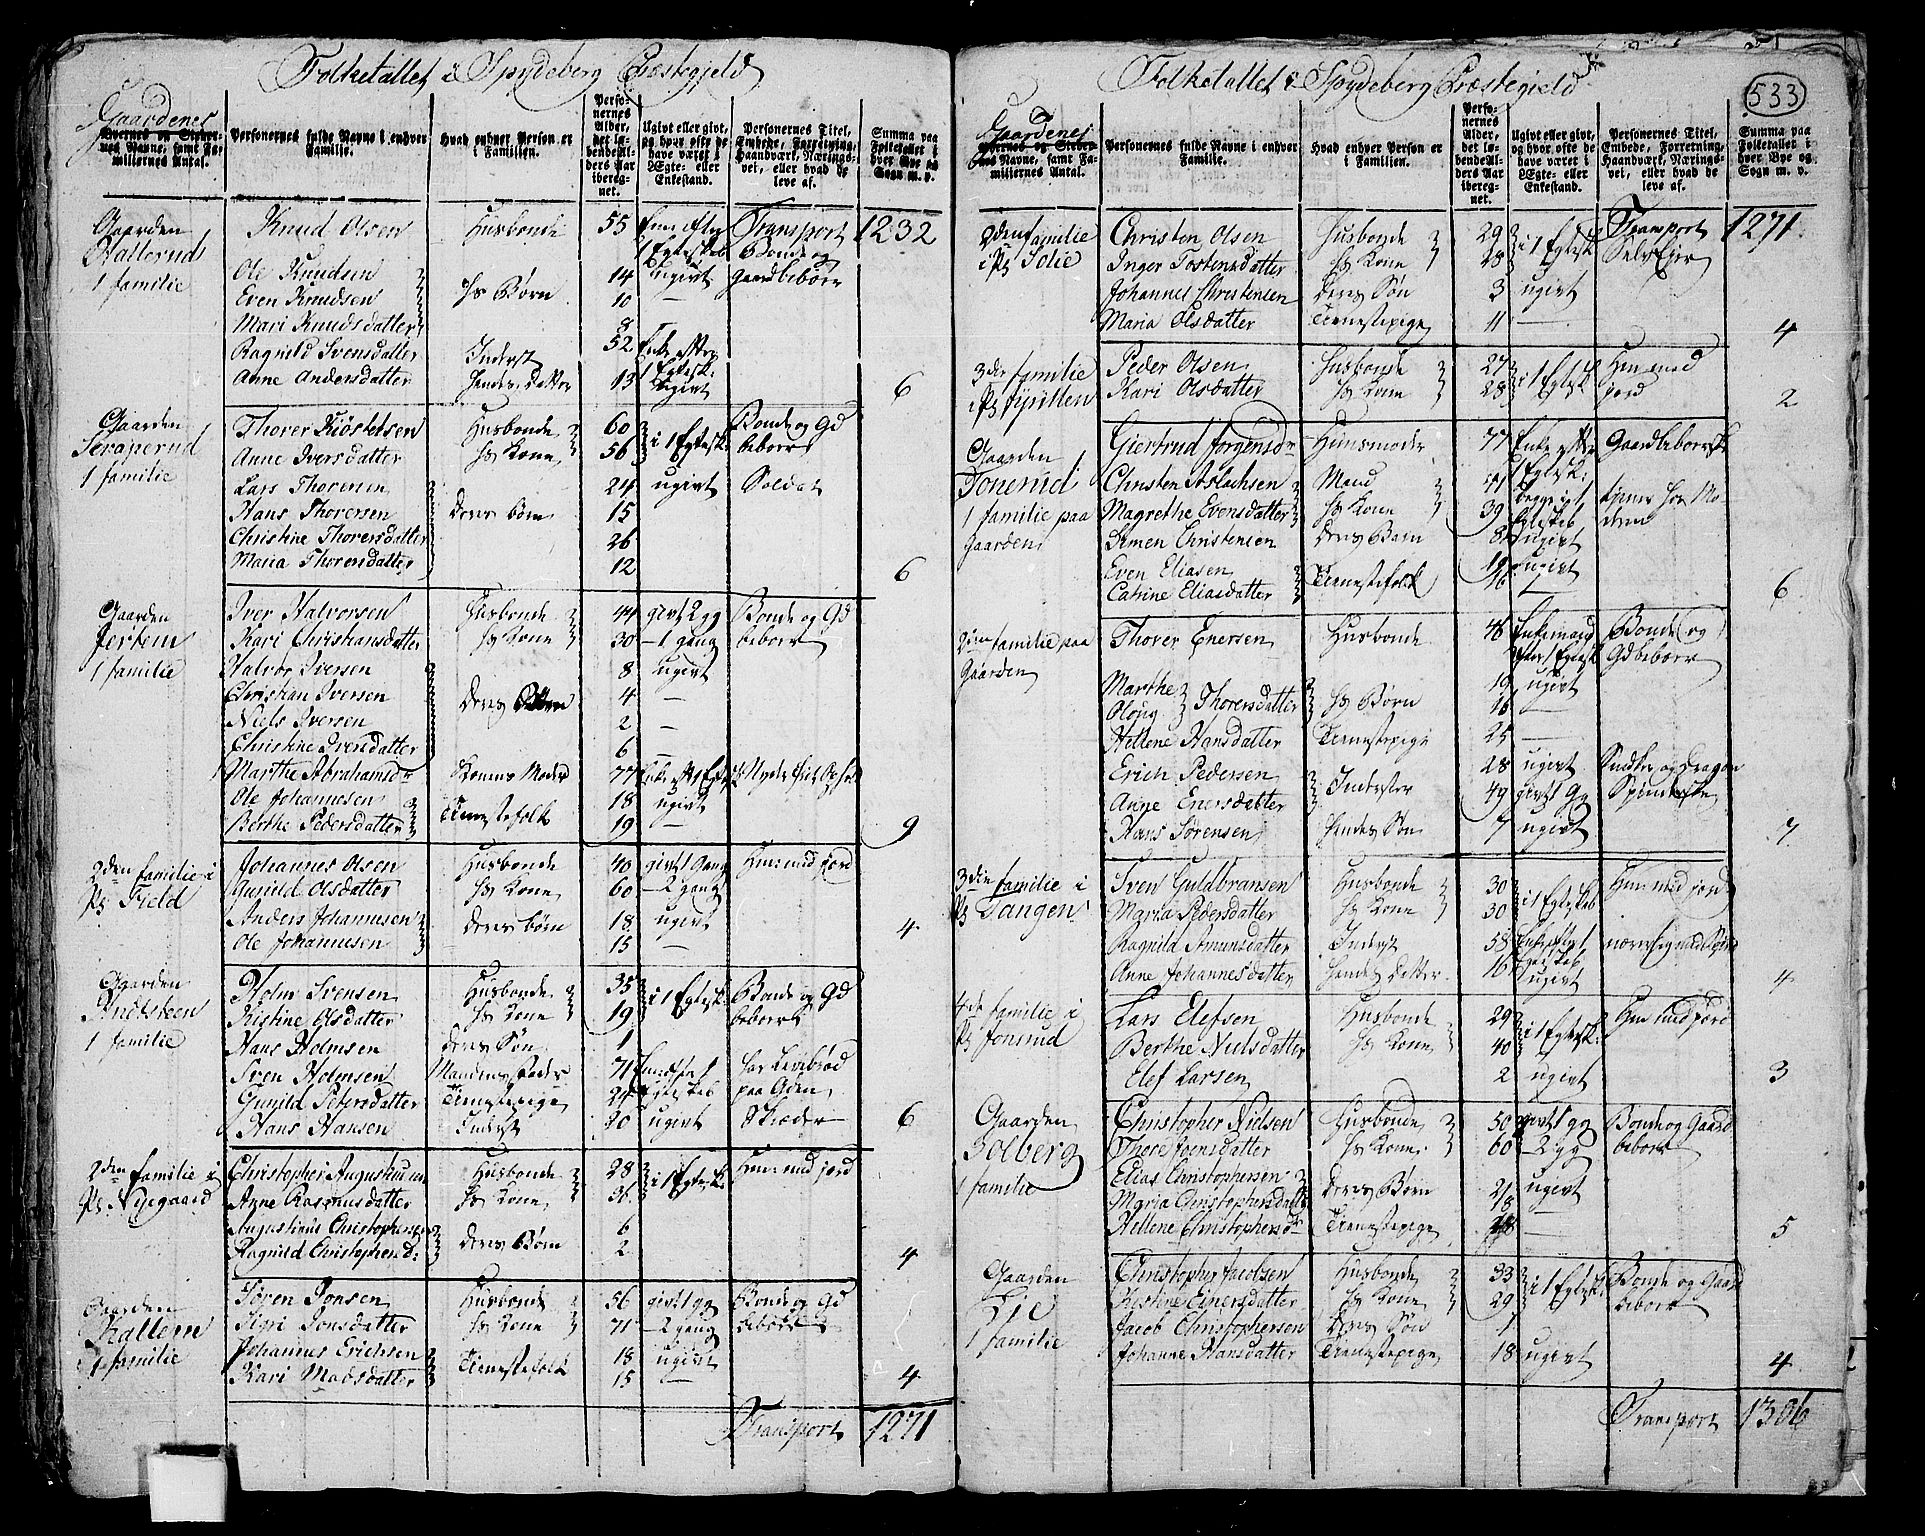 Folketallet i Spydeberg Præstegield
Gaardenes
Byernes og Stedernes Navne, samt Familiernes Antal.
Personernes fulde Navne i enhver Familie.
Hvad enhver Person er i Familien.
Personernes Alder, det løbende Alders Aar iberegnet.
Ugivt eller givt, og hvor ofte de have været i Ægte- eller Enkestand.
Personernes Titel, Embede, Forretning, Haandværk, Næringsvei, eller hvad de leve af.
Summa paa Folketallet i hver Bye og Sogn m. v.
Gaarden
1 familie
Knud Olsen Husbonde 55 Transport 1232
Bonde og
gaardbeboer
Ole Knudsen 14 ugivt
Even Knudsen Hs Børn 10
Mari Knudsdatter 8 —
Ragnild Svensdatter Inderst 52
Anne Andersdatter Hendes Datter 13 ugivt 6
Gaarden
1 familie
Thorer Kiøstelsen Husbonde 60 i 1 Egtesk. Bonde og Gd
Anne Iversdatter Hs Kone 56 beboer
Lars Thorersen 24 ugivt Soldat
Hans Thorersen deres børn 15
Christine Thorersdatter 26
Maria Thorersdatter 12 6
Gaarden
Jertem
1 familie
Iver Halvorsen Husbonde 44 givt 2 gg Bonde og Gd
Kari Christiansdatter Hs Kone 30 — 1 gang beboer
Halvor Iversen 8 ugivt
Christian Iversen deres Børn 4 —
Niels Iversen 2 —
Christine Iversdatter 6 —
Marthe Abrahamsdr Konens Moder 77
Ole Johannesen Tienestefolk 18 ugivt
Berthe Pedersdatter 19 — 9
2den familie i
Pl. Field
Johannes Olsen Husbonde 40 givt 1 Gang Huusmd jord
Gunild Olsdatter Hs Kone 60 — 2 gang
Anders Johannesen deres børn 18 ugivt
Ole Johannesen 15 — 4
Gaarden
1 familie
Holm Svensen Husbonde 35 i 1 Egtesk. Bonde og Gd
Kistine Olsdatter Hs Kone 19 beboer
Hans Holmsen deres Søn 1
Sven Holmsen Mandens Fader 71 har Levebrød
paa Gden
Gunild Petersdatter Tienestepige 24
Hans Hansen Inderst 20 ugivt Skræder 6
2den familie i
Pl. Nyegaard
Christopher Husbonde 28 i 1 Egtesk. Huusmd jord
Anne Rasmusdatter Hs Kone 36
Augustinus Christophersen deres Børn 6
Ragnild Christophersd: 2 4
Gaarden
1 familie
Søren Jonsen Husbonde 56 givt 1 gg Bonde og Gd
Sigri Jonsdatter Hs Kone 71 — 2 gang beboer
Johannes Erichsen Tienestefolk 18 ugivt
Kari Madsdatter 15 — 4
Transport 1271
533
Folketallet i Spydeberg Præstegield
Gaardenes
Byernes og Stedernes Navne, samt Familiernes Antal.
Personernes fulde Navne i enhver Familie.
Hvad enhver Person er i Familien.
Personernes Alder, det løbende Alders Aar iberegnet.
Ugivt eller givt, og hvor ofte de have været i Ægte- eller Enkestand.
Personernes Titel, Embede, Forretning, Haandværk, Næringsvei, eller hvad de leve af.
Summa paa Folketallet i hver Bye og Sogn m. v.
2den familie
i Pl. Solie
Transport 1271
Christen Olsen Husbonde 29 i 1 Egtesk SelvEier
Inger Tostensdatter Hs Kone 28
Johannes Christensen deres Søn 3 ugivt
Maria Olsdatter Tienestepige 11 — 4
3die familie
Peder Olsen Husbonde 27 i 1 Egtesk Huusmd
Kari Olsdatter Hs Kone 28 jord 2
Gaarden
Tonerud
1 familie paa
Gaarden
Giertrud Jørgensdr Huusmoder 77 Gaardbeboerske
Christen Aslachsen Mand 51 tiener hos Mo-
Magrethe Evensdatter Hs Kone 39 deren
Simen Christensen deres Barn 8 ugivt
Even Eliasen Tienestefolk 19 ugivt
Catrine Eliasdatter 16 — 6
2den familie paa
Gaarden
Thorer Enersen Husbonde 46 Enkemand Bonde og
efter 1 Egtesk Gdbeboer
Marthe Thorersdatter Hs Børn 19 ugivt
Oloug 16 —
Hellene Hansdatter Tienestepige 25 —
Erich Pedersen Inderster 28 ugivt Snedker og dragon
Anne Enersdatter 49 givt 1 Gg Spinderske
Hans Sørensen hendes Søn 7 ugivt 7
3die familie i
Pl. Tangen
Sven Guldbransen Husbonde 30 i 1 Egteskab Huusmed jord
Maria Pedersdatter Hs Kone 30
Ragnild Amunsdatter Inderst 58
Anne Johannesdatter hendes datter 16 ugivt 4
4de familie i
Pl. Jonsrud
Lars Elefsen Husbonde 29 i 1 Egtesk. Huusmd jord
Berthe Nielsdatter Hs Kone 40
Elef Larsen 2 ugivt 3
Gaarden
Solberg
1 familie
Christopher Nielsen Husbonde 50 givt 1 gg Bonde og Gaard
Thore Joensdatter Hs Kone 60 — 2 gg beboer
Elias Christophersen deres Børn 21 ugivt
Maria Christophersdatter 18
Hellene Christophersdr Tienestepige — 5
Gaarden
Lie
1 familie
Christopher Jacobsen Husbonde 33 i 1 Egtesk. Bonde og Gaard
Kistine Einersdatter Hs Kone 29 beboer
Jacob Christophersen deres Søn 1
Johanne Hansdatter Tienestepige 18 ugivt 4
Transport 1306